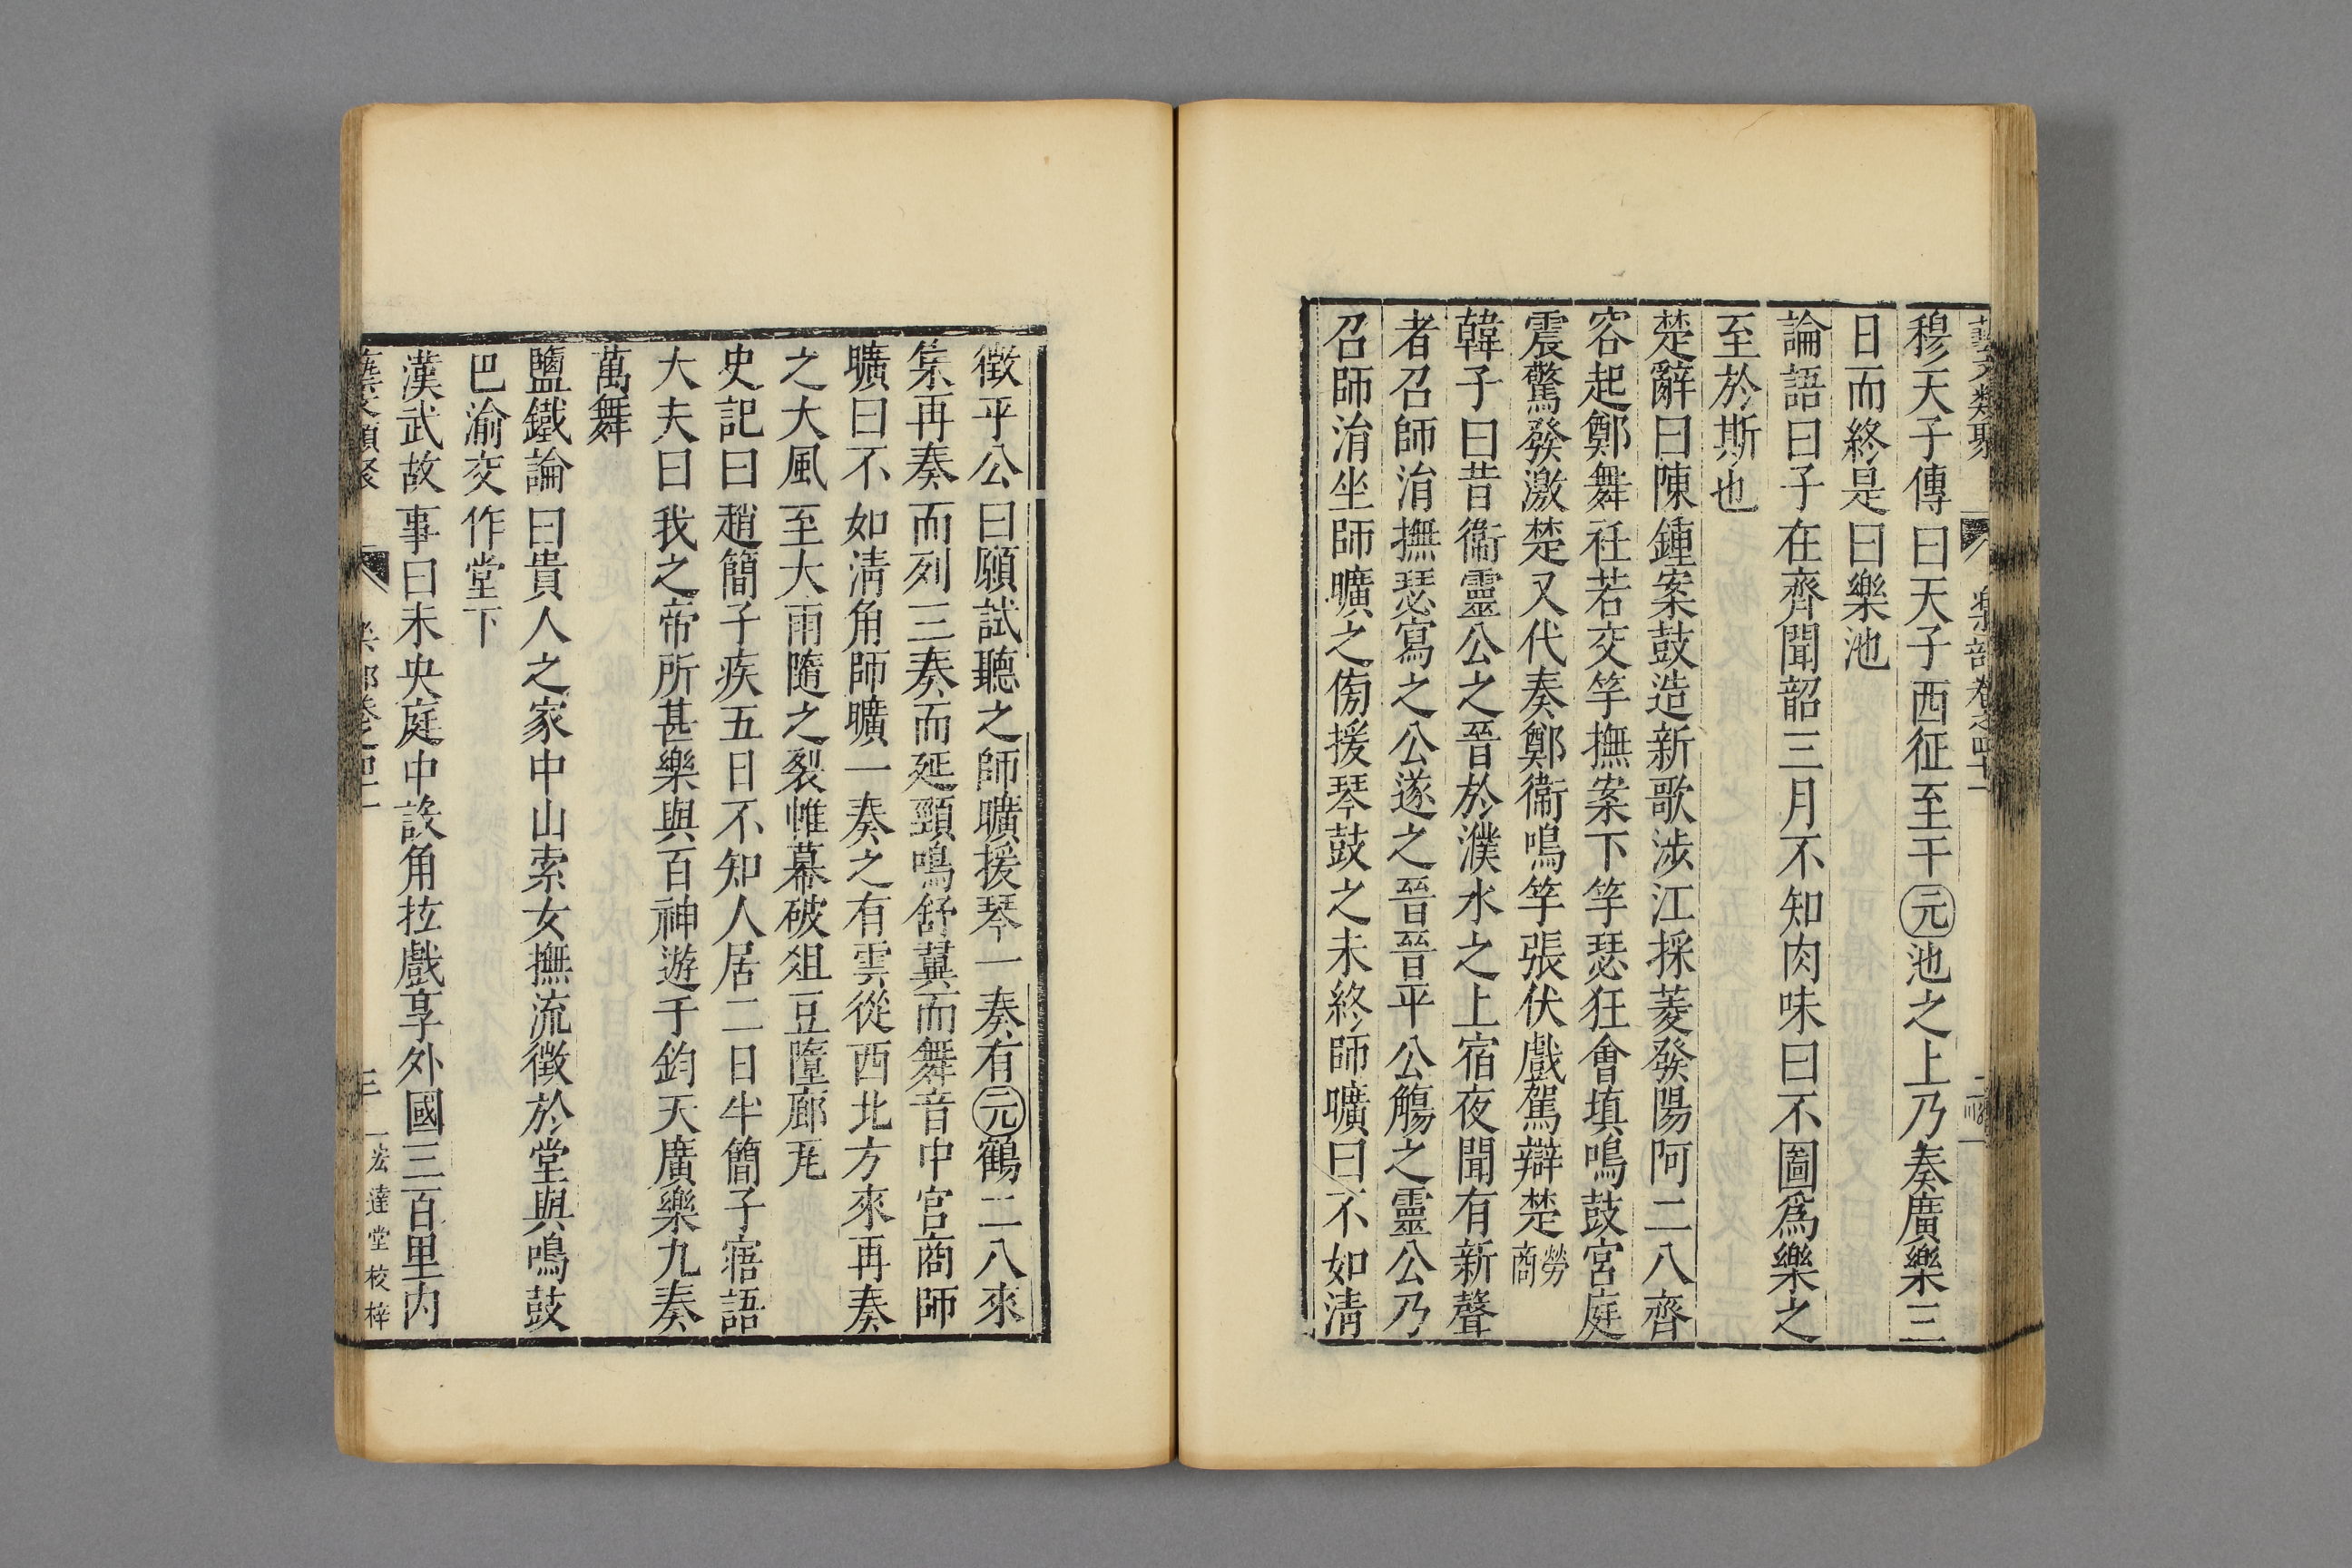 藝文類聚 樂部卷之四十一 二
穆天子傳曰天子西征至于元池之上乃奏廣樂三
日而終是曰樂池
論語曰子在齊聞韶三月不知肉味曰不圖爲樂之
至於斯也
楚辭曰陳鍾案鼓造新歌涉江採菱發陽阿二八齊
容起鄭舞衽若交竽撫案下竽瑟狂會填鳴鼓宮庭
震驚發激楚又代奏鄭衞鳴竽張伏戲駕辯楚勞商
韓子曰昔衞靈公之晉於濮水之上宿夜聞有新聲
者召師涓撫瑟寫之公遂之晉晉平公觴之靈公乃
召師涓坐師曠之傍援琴鼓之未終師曠曰不如清
徵平公曰願試聽之師曠援琴一奏有元鶴二八來
集再奏而列三奏而延頸鳴舒翼而舞音中宮商師
曠曰不如清角師曠一奏之有雲從西北方來再奏
之大風至大雨隨之裂帷幕破俎豆墮廊瓦
史記曰趙簡子疾五日不知人居二日半簡子寤語
大夫曰我之帝所甚樂與百神游于鈞天廣樂九奏
萬舞
鹽鐵論曰貴人之家中山素女撫流徵於堂與鳴鼓
巴渝交作堂下
漢武故事曰未央庭中設角抵戲享外國三百里内
藝文類聚 樂部卷之四十一 三 宏達堂校梓